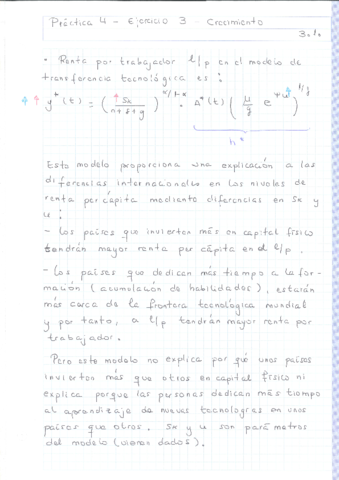 Práctica 4 - Ejercicio 3 - Crecimiento
3.1.
• Renta por trabajador l/p en el modelo de
transferencia tecnológica es:
y*(t) = (sk / (n+δ+g))^(α/1-α) · A*(t) (μ/g e^(ψu))^(1/γ)
h*
Este modelo proporciona una explicación a las
diferencias internacionales en los niveles de
renta per cápita mediante diferencias en sk y
u:
- Los países que invierten más en capital físico
tendrán mayor renta per cápita en el l/p.
- Los países que dedican más tiempo a la for-
mación (acumulación de habilidades), estarán
más cerca de la frontera tecnológica mundial
y por tanto, a l/p tendrán mayor renta por
trabajador.
Pero este modelo no explica por qué unos países
invierten más que otros en capital físico ni
explica porque las personas dedican más tiempo
al aprendizaje de nuevas tecnologías en unos
países que otros. sk y u son parámetros
del modelo (vienen dados).